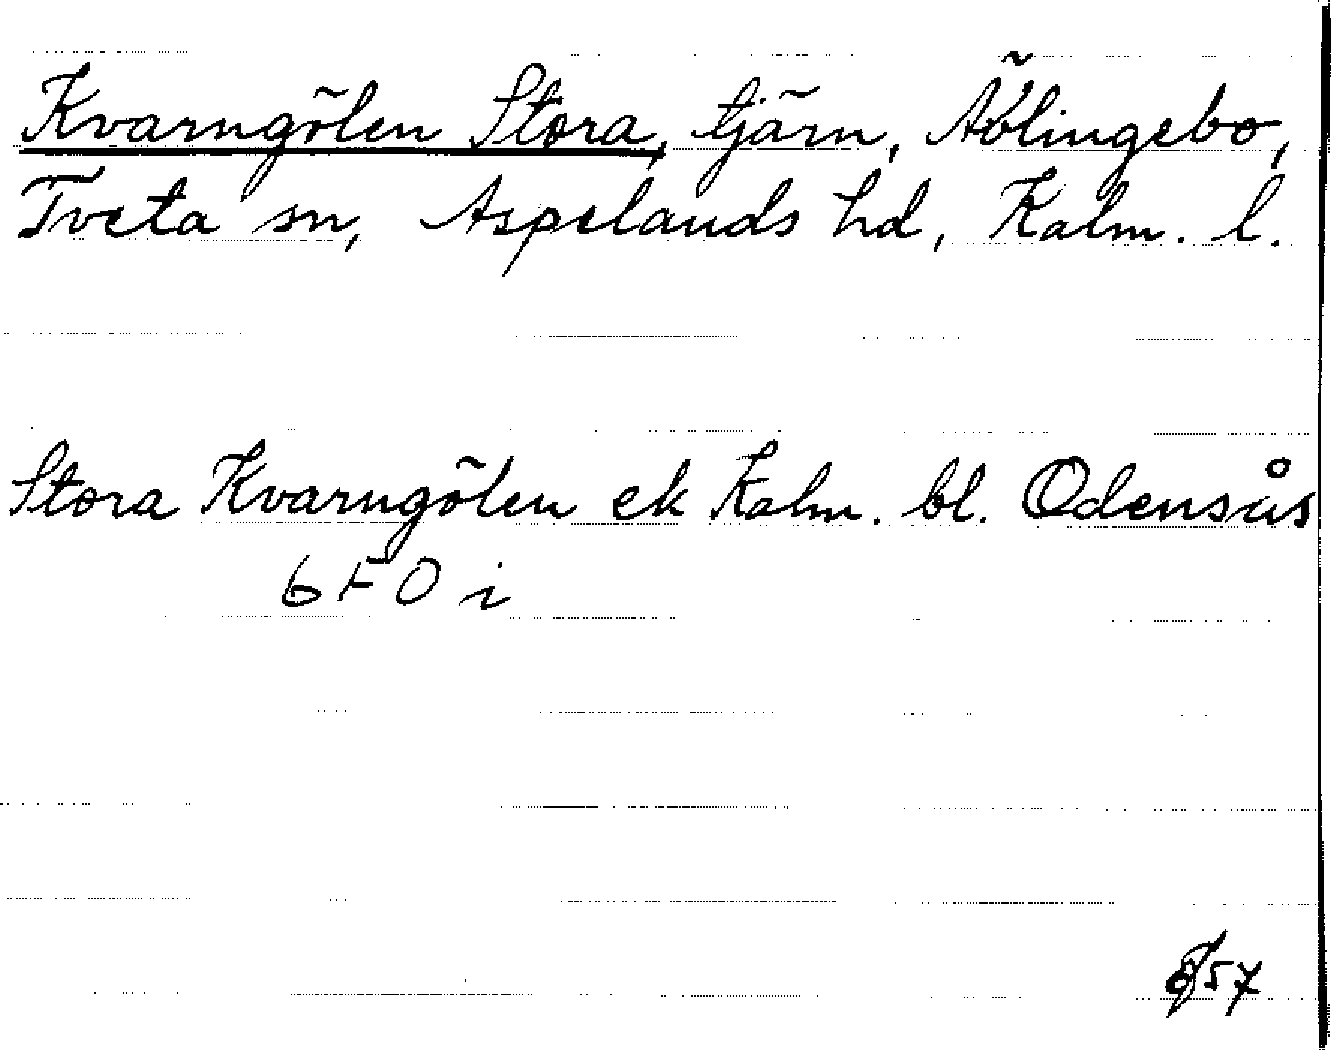 Kvarngölen Stora, tjärn, Äblingebo,
Tveta sn, Aspelands hd, Kalm. l.
Stora Kvarngölen ek Kalm. bl. Odensås
6F0i
57